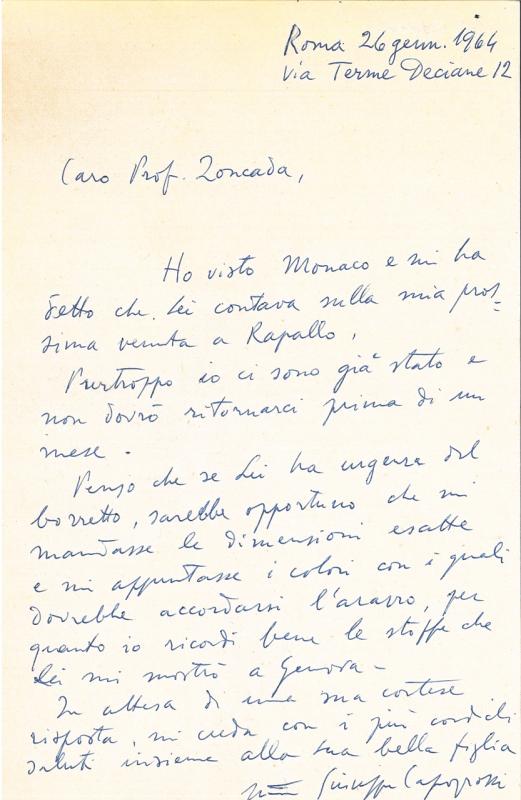 Roma 26 genn. 1964
Via Terme Deciane 12
Caro Prof. Zoncada,
Ho visto Monaco e mi ha
detto che Lei contava sulla mia pros=
sima venuta a Rapallo.
Purtroppo io ci sono già stato e
non dovrò ritornarci prima di un
mese.
Penso che se Lei ha urgenza del
bozzetto, sarebbe opportuno che mi
mandasse le dimensioni esatte
e mi appuntasse i colori con i quali
dovrebbe accordarsi l'arazzo, per
quanto io ricordi bene le stoffe che
Lei mi mostrò a Genova -
In attesa di una sua cortese
risposta, mi creda con i più cordiali
saluti insieme alla sua bella figlia
Giuseppe Capogrossi